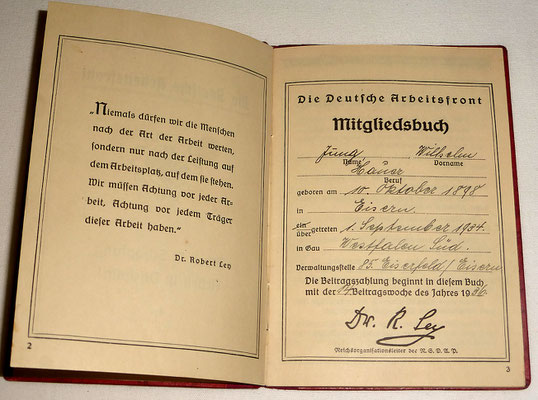 „Niemals dürfen wir die Menschen
nach der Art der Arbeit werten,
sondern nur nach der Leistung auf
dem Arbeitsplatz, auf dem sie stehen.
Wir müssen Achtung vor jeder Ar-
beit, Achtung vor jedem Träger
dieser Arbeit haben.“
Dr. Robert Ley
2
Die Deutsche Arbeitsfront
Mitgliedsbuch
Jung Wilhelm
Name Vorname
Hauer
Beruf
geboren am 10. Oktober 1898
in Eisern
ein
über getreten 1. September 1934
in Gau Westfalen Süd.
Verwaltungsstelle 85. Eiserfeld/Eisern
Die Beitragszahlung beginnt in diesem Buch
mit der Beitragswoche des Jahres 1936
Dr. R. Ley
Reichsorganisationsleiter der N.S.D.A.P.
3